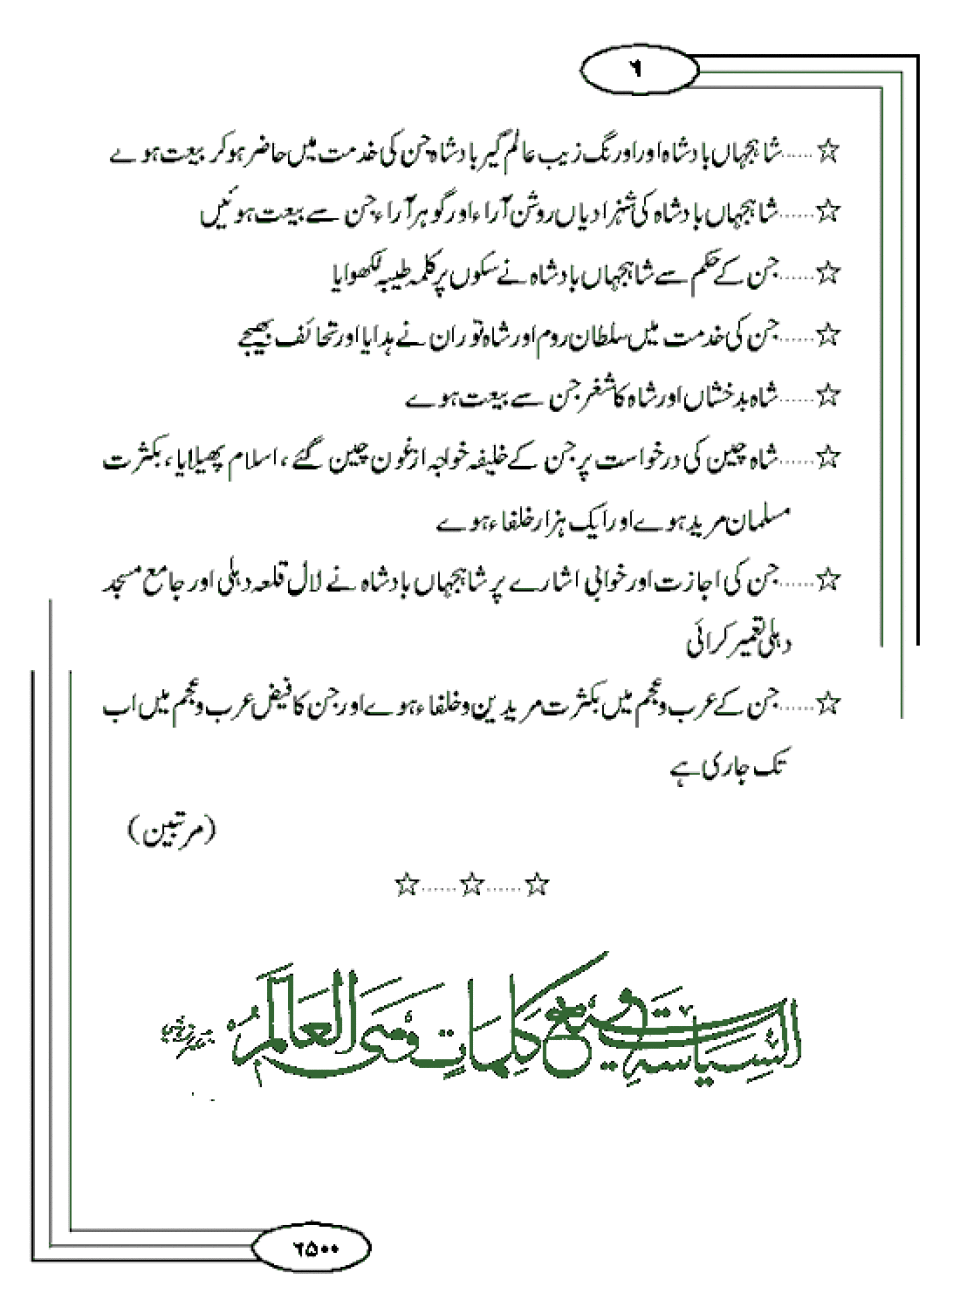 ۶
☆......شاہجہاں بادشاہ اور اورنگ زیب عالم گیر بادشاہ جن کی خدمت میں حاضر ہوکر بیعت ہوے
☆......شاہجہاں بادشاہ کی شہزادیاں روشن آراء اور گوہر آراء جن سے بیعت ہوئیں
☆......جن کے حکم سے شاہجہاں بادشاہ نے سکوں پر کلمہ طیبہ لکھوایا
☆......جن کی خدمت میں سلطان روم اور شاہ توران نے ہدایا اور تحائف بھیجے
☆......شاہ بدخشاں اور شاہ کاشغر جن سے بیعت ہوے
☆......شاہ چین کی درخواست پر جن کے خلیفہ خواجہ ارغون چین گئے، اسلام پھیلایا، بکثرت
مسلمان مرید ہوے اور ایک ہزار خلفاء ہوے
☆......جن کی اجازت اور خوابی اشارے پر شاہجہاں بادشاہ نے لال قلعہ دہلی اور جامع مسجد
دہلی تعمیر کرائی
☆......جن کے عرب و عجم میں بکثرت مریدین و خلفاء ہوے اور جن کا فیض عرب و عجم میں اب
تک جاری ہے
(مرتبین)
☆......☆......☆
العالم
۶۵۰۰